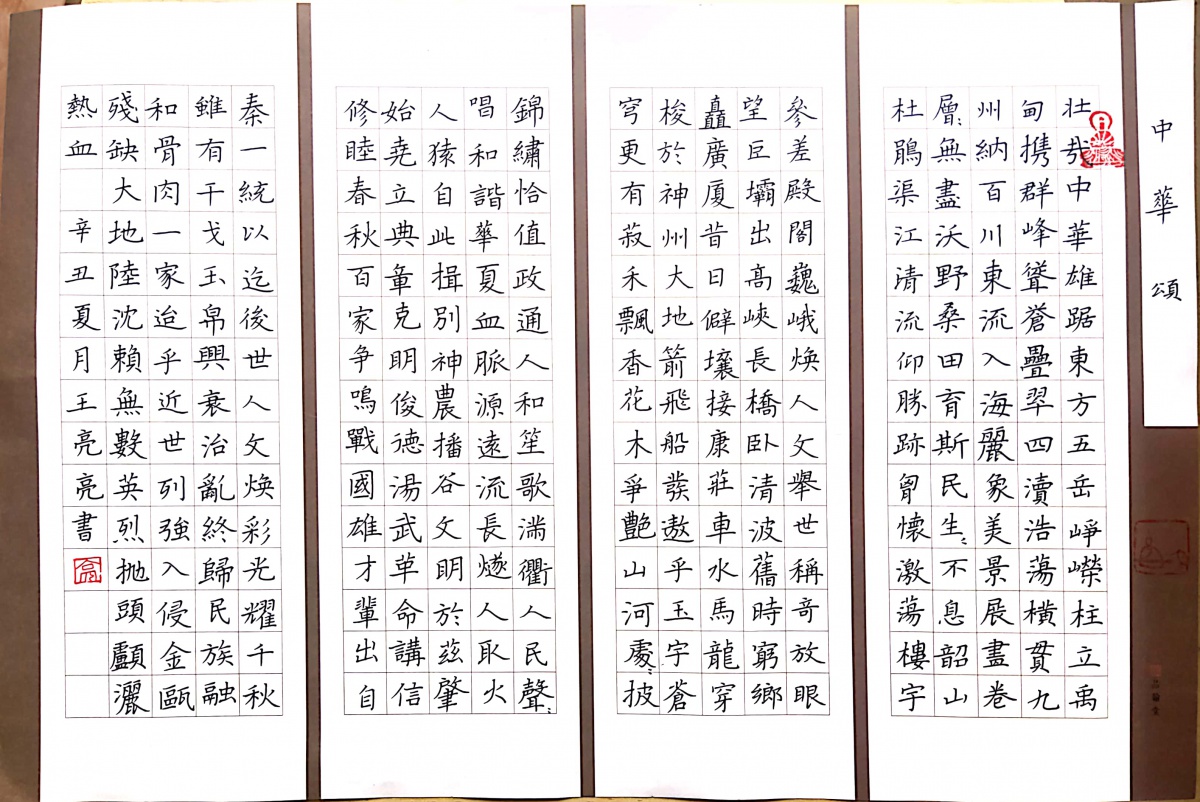 中華頌
壮哉中華雄踞東方五岳崢嶸柱立禹
甸携群峰聳蒼疊翠四瀆浩蕩横貫九
州納百川東流入海麗象美景展盡卷
層〻無盡沃野桑田育斯民生〻不息韶山
杜鵑渠江清流仰勝跡胷懷激蕩樓宇
參差殿閣巍峨焕人文舉世稱奇放眼
望巨壩出高峽長橋卧清波舊時窮鄉
矗廣厦昔日僻壤接康莊車水馬龍穿
梭於神州大地箭飛船發遨乎玉宇蒼
穹更有菽禾飄香花木爭艷山河處〻披
錦繡恰值政通人和笙歌滿衢人民聲〻
唱和諧華夏血脈源遠流長燧人取火
人猿自此揖別神農播谷文明於茲肇
始堯立典章克明俊德湯武革命講信
修睦春秋百家争鳴戰國雄才輩出自
秦一統以迄後世人文焕彩光耀千秋
雖有干戈玉帛興衰治亂終歸民族融
和骨肉一家迨乎近世列強入侵金甌
殘缺大地陸沈賴無數英烈抛頭顱灑
熱血 辛丑夏月王亮亮書